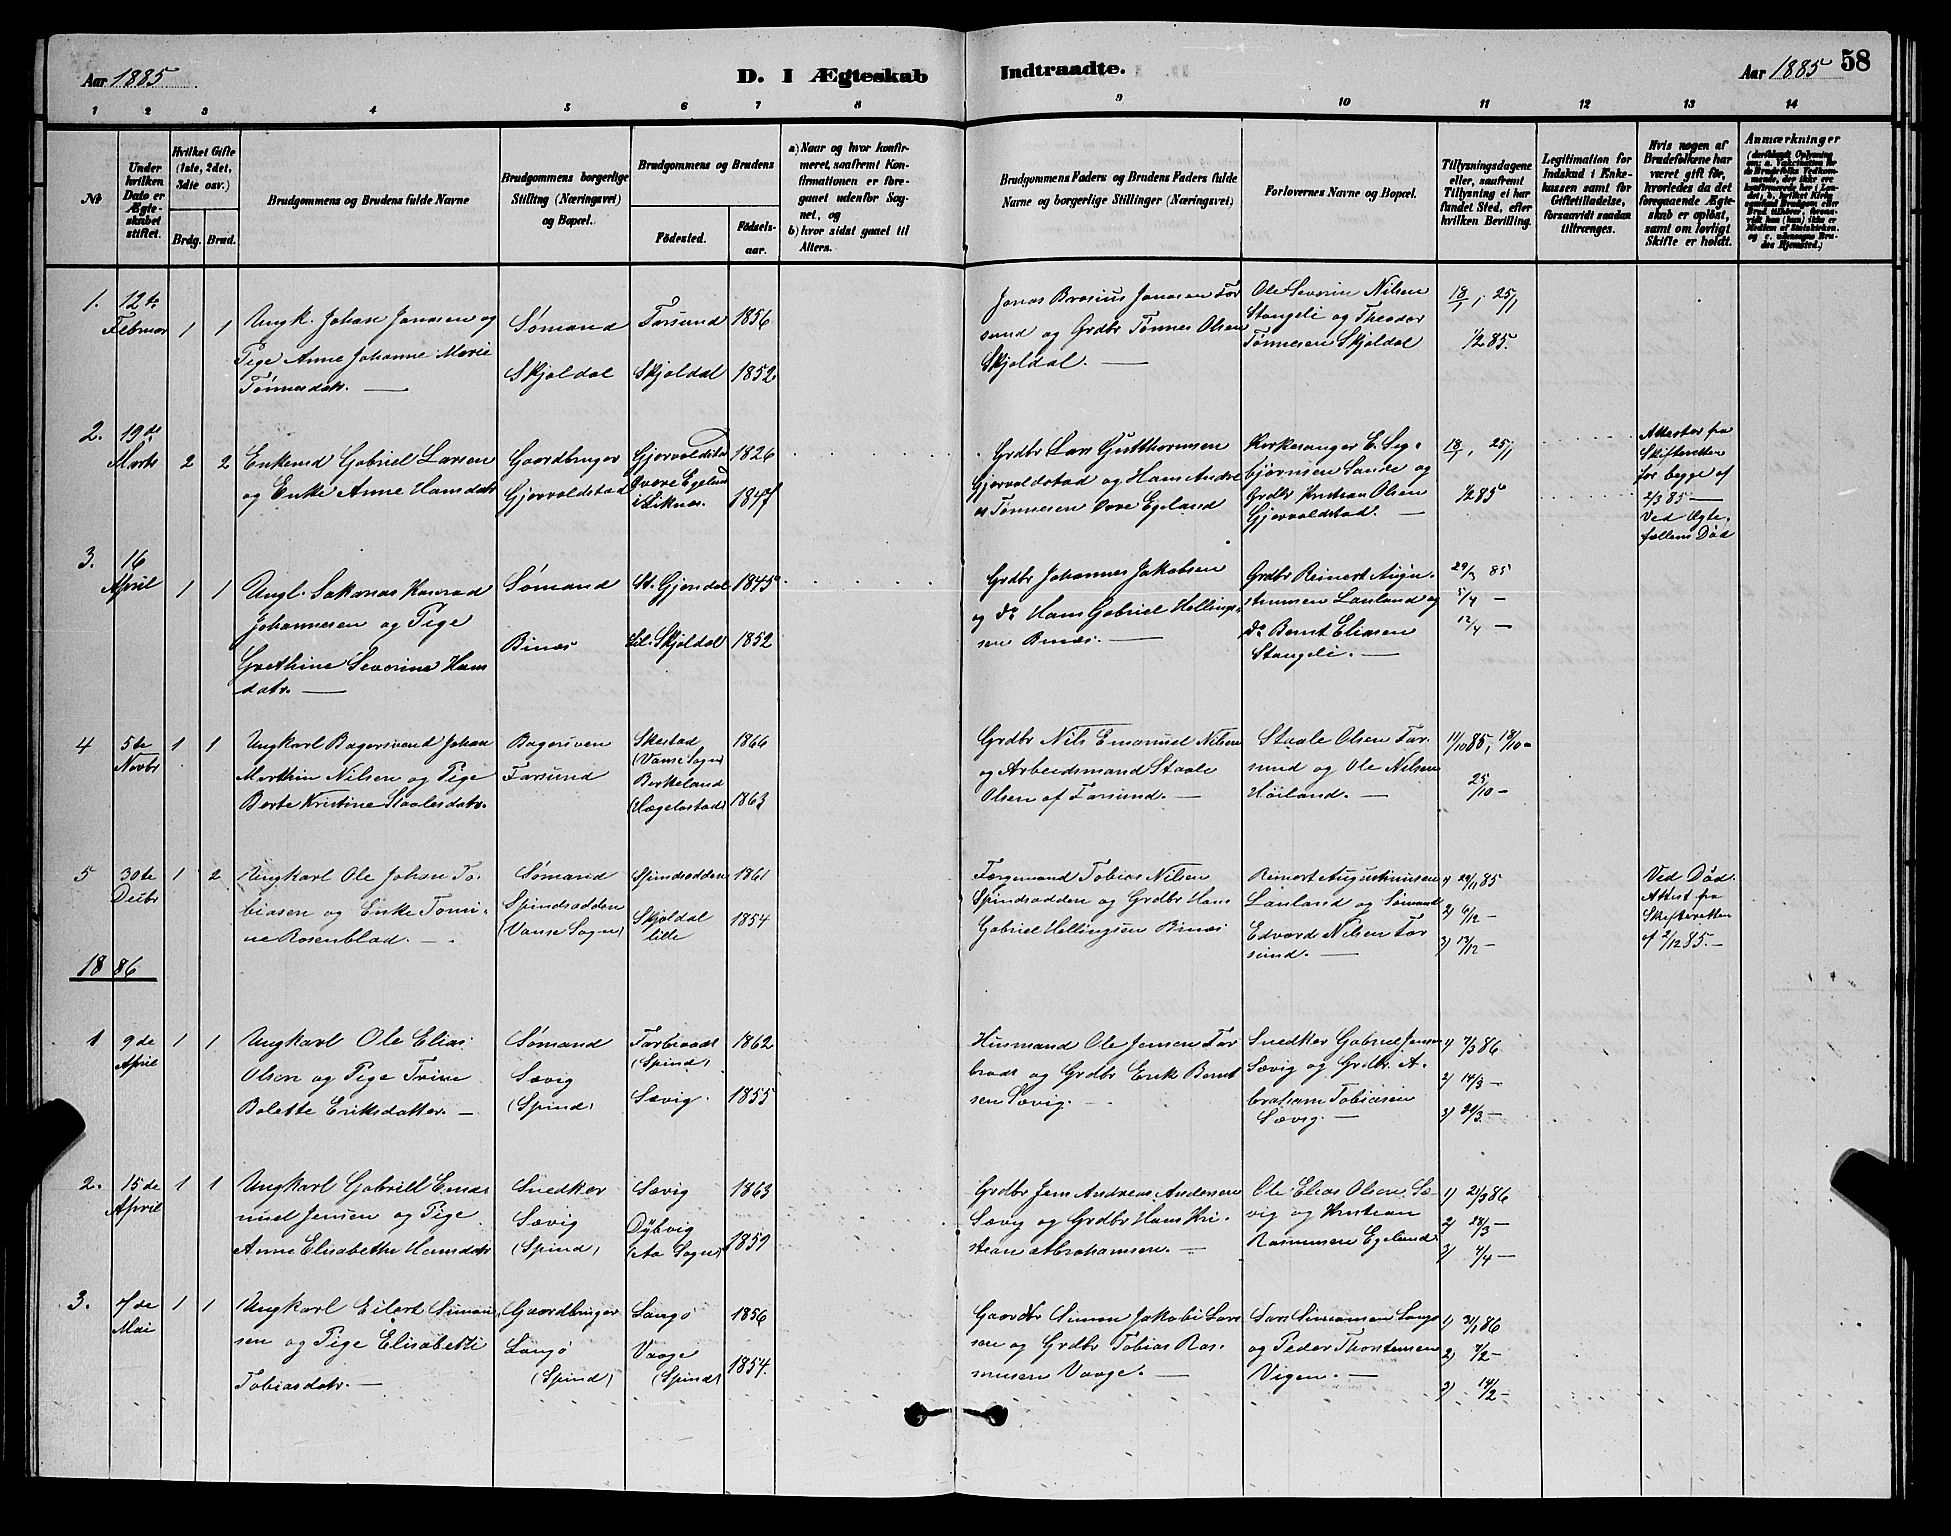 Aar 1885
D. I Ægteskab Indtraadte.
Aar 1885
58
1 2 3 4 5 6 7 8 9 10 11 12 13 14
№
Under hvilken Dato er Ægteskabet stiftet.
Hvilket Gifte (1ste, 2det, 3die osv.)
Brdg. Brud.
Brudgommens og Brudens fulde Navne
Brudgommens borgerlige Stilling (Næringsvei) og Bopæl.
Brudgommens og Brudens
Fødested. Fødselsaar.
a) Naar og hvor konfirmeret, saafremt Konfirmationen er foregaaet udenfor Sognet, og
b) hvor sidst gaaet til Alters.
Brudgommens Faders og Brudens Faders fulde Navne og borgerlige Stillinger (Næringsvei)
Forlovernes Navne og Bopæl.
Tillysningsdagene eller, saafremt Tillysning ei har fundet Sted, efter hvilken Bevilling.
Legitimation for Indskud i Enkekassen samt for Giftetilladelse, forsaavidt saadan tiltrænges.
Hvis nogen af Brudefolkene har været gift før, hvorledes da det foregaaende Ægteskab er opløst, samt om lovligt Skifte er holdt.
Anmærkninger
1.
12te
Februar
1 1
Ungk. Johan Jonassen og
Pige Anne Johanne Marie
Tønnesdatr. —
Sømand
Skjoldal
Farsund
Skjoldal
1856
1852
Jonas Brosius Jonasen Far
sund og Grdbr Tønnes Olsen
Skjoldal. —
Ole Severin Nilsen
Stangeli og Theodor
Tønnesen Skjoldal
18/1, 25/1
1/2 85.
2.
19de
Marts
2 2
Enkemd Gabriel Larsen
og Enke Anne Hansdatr
Gaardbruger
Gjervoldstad
Gjervoldstad
Øvere Egeland
i Liknes.
1826
1847
Grdbr Lars Gutthormsen
Gjervoldstad og Hans Andre
as Tønnesen Øvre Egeland
Kirkesanger E. Seg-
bjørnsen Sande og
Grdbr Kristian Olsen
Gjervoldstad. —
18/1, 25/1
1/2 85
Attester fra
Skifteretten
for begge af
2/3 85 —
Ved Ægte-
fællens Død
3.
16
April
1 1
Ungk. Sakarias Konrad
Johannesen og Pige
Grethine Severine Hans
datr. —
Sømand
Binæs
St. Gjersdal
Lil. Skjoldal
1845
1852
Grdbr Johannes Jakobsen
og do Hans Gabriel Helling-
sen Binæs. —
Grdbr Reinert Augu-
stinusen Lauland og
do Bernt Eliasen
Stangeli. —
29/3 85
5/4 —
12/4 —
4
5te
Novbr
1 1
Ungkarl Bagersvend Johan
Marthin Nilsen og Pige
Berte Kristine Staalesdatr.
Bagersven
Farsund
Skestad
(Vanse Sogn)
Birkeland
(Hægebostad)
1866
1863
Grdbr Nils Emanuel Nilsen
og Arbeidsmand Staale
Olsen af Farsund. —
Staale Olsen Far-
sund og Ole Nilsen
Høiland. —
11/10 85, 18/10 —
25/10 —
5
30te
Decbr
1 2
Ungkarl Ole Johan To-
biasen og Enke Tomi-
ne Rosenblad. —
Sømand
Spindsodden
(Vanse Sogn)
Spindsodden
Skjoldal
lille
1861
1854
Færgemand Tobias Nilsen
Spindsodden og Grdbr Hans
Gabriel Hellingsen Binæs
Reinert Augustinusen
Lauland og Sømand
Edvard Nilsen Far
sund. —
1) 29/11 85
2) 6/12 —
3) 13/12 —
Ved Død.
Attest fra
Skifteretten
af 2/12 85. —
1886
1
9de
April
1 1
Ungkarl Ole Elias
Olsen og Pige Trine
Bolette Eriksdatter. —
Sømand
Sævig
(Spind)
Farbrodt
(Spind)
Sævig.
1862
1855
Husmand Ole Jensen Far
brodt og Grdbr Erik Bernt
sen Sævig. —
Snedker Gabriel Jensen
Sævig og Grdbr. A-
braham Tobiasen
Sævig. —
1) 7/3 86
2) 14/3 —
3) 21/3 —
2.
15de
April
1 1
Ungkarl Gabriel Ema-
nuel Jensen og Pige
Anne Elisabethe Hansdatr
Snedker
Sævig
(Spind)
Sævig
Dybvig
(Aa Sogn)
1863
1851
Grdbr Jens Andreas Andersen
Sævig og Grdbr Hans Kri-
stian Abrahamsen. —
Ole Elias Olsen Sæ-
vig og Kristian
Rasmusen Egeland
1) 21/3 86
2) 28/3 —
3) 4/4 —
3.
7de
Mai
1 1
Ungkarl Eilert Simon-
sen og Pige Elisabeth
Tobiasdatr. —
Gaardbruger
Langø
(Spind)
Langø
Vaage
(Spind)
1856
1854.
Gaardbr Simon Jakobi Lar-
sen og Grdbr Tobias Ras-
musen Vaage. —
Lars Simonsen Langø
og Peder Thorstensen
Vigen. —
1) 31/1 86
2) 7/2 —
3) 14/2 —